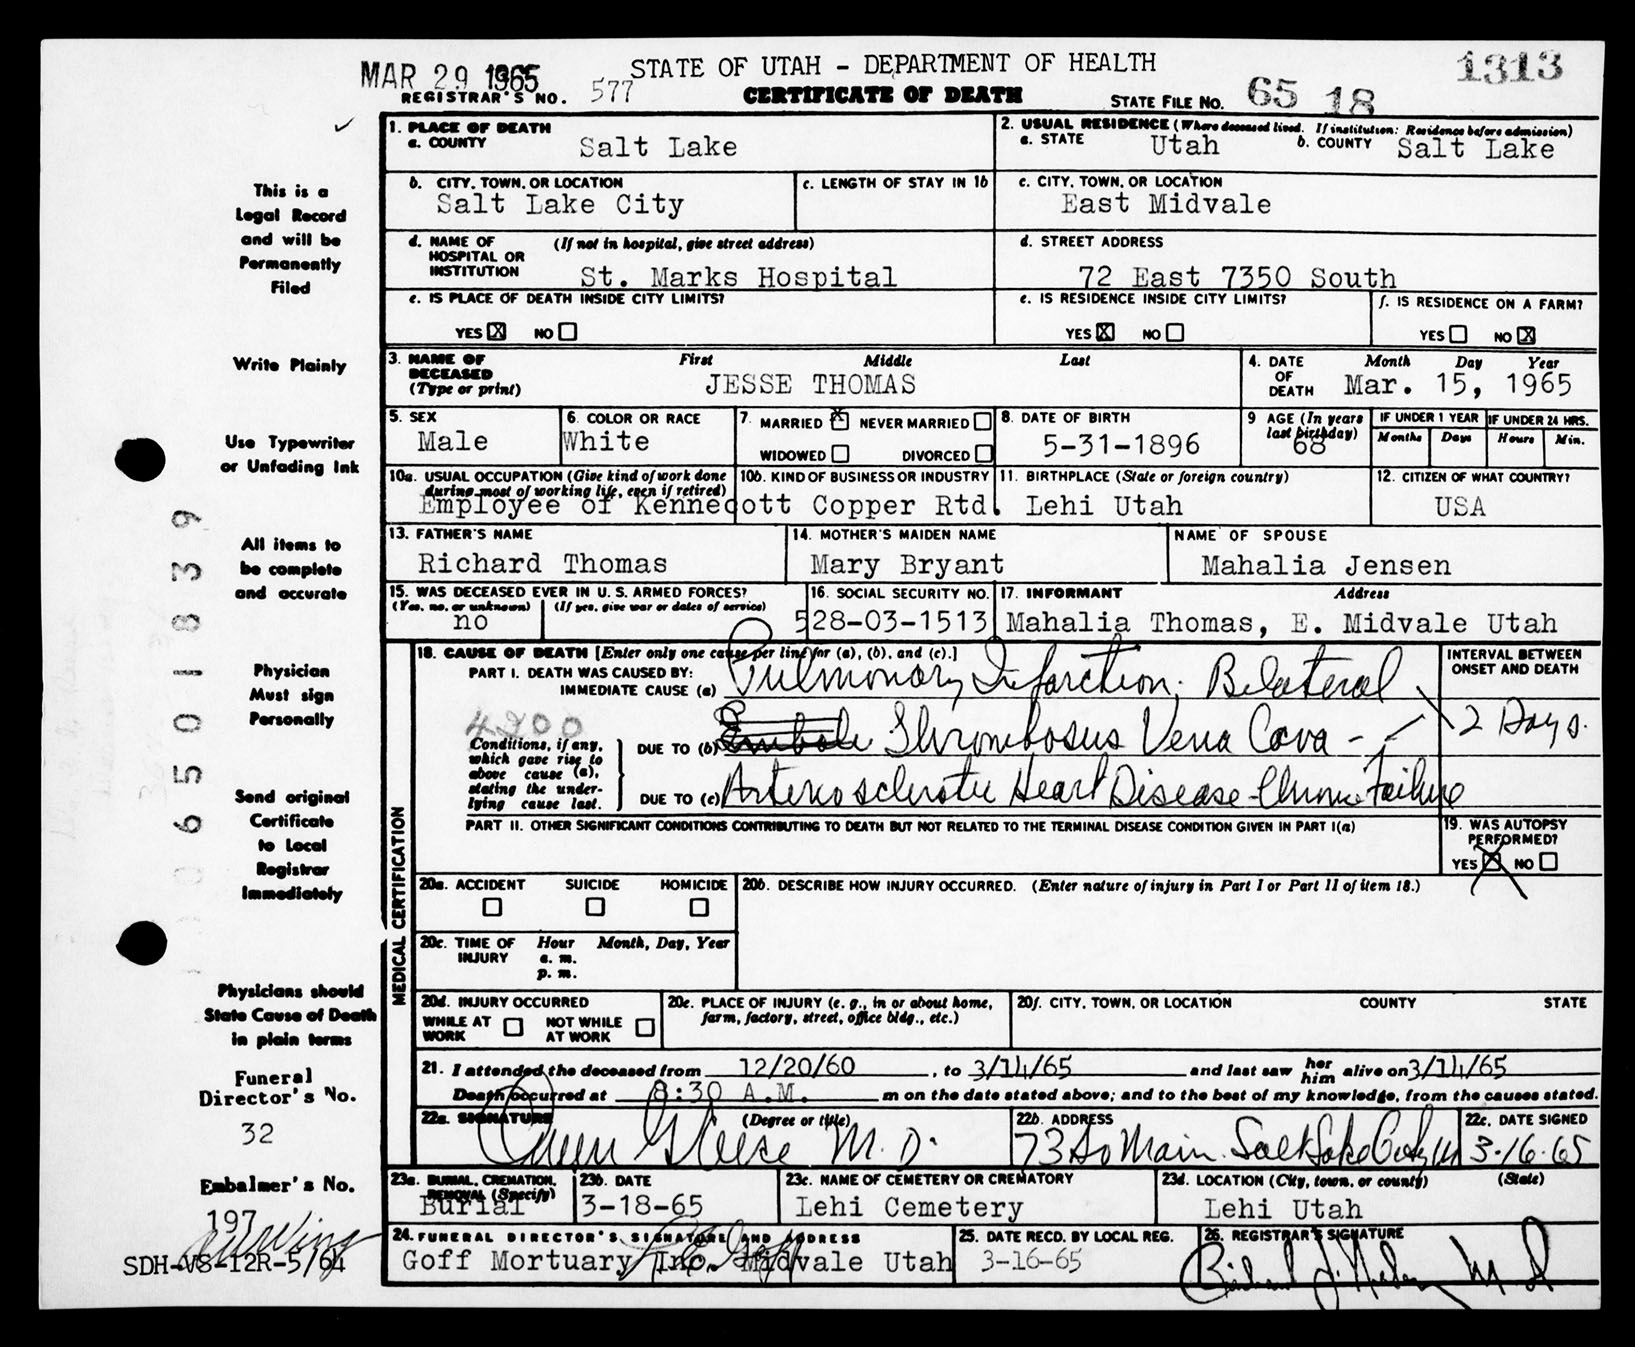 MAR 29 1965
STATE OF UTAH - DEPARTMENT OF HEALTH
1313
REGISTRAR'S NO. 577
CERTIFICATE OF DEATH
STATE FILE NO. 65 18
1. PLACE OF DEATH
a. COUNTY Salt Lake
2. USUAL RESIDENCE (Where deceased lived. If institution: Residence before admission)
a. STATE Utah b. COUNTY Salt Lake
b. CITY, TOWN, OR LOCATION
Salt Lake City
c. LENGTH OF STAY IN 1b
c. CITY, TOWN, OR LOCATION
East Midvale
d. NAME OF HOSPITAL OR INSTITUTION (If not in hospital, give street address)
St. Marks Hospital
d. STREET ADDRESS
72 East 7350 South
e. IS PLACE OF DEATH INSIDE CITY LIMITS?
YES X NO
e. IS RESIDENCE INSIDE CITY LIMITS?
YES X NO
f. IS RESIDENCE ON A FARM?
YES NO X
3. NAME OF DECEASED (Type or print)
First Middle Last
JESSE THOMAS
4. DATE OF DEATH Month Day Year
Mar. 15, 1965
5. SEX
Male
6. COLOR OR RACE
White
7. MARRIED X NEVER MARRIED
WIDOWED DIVORCED
8. DATE OF BIRTH
5-31-1896
9 AGE (In years last birthday)
68
IF UNDER 1 YEAR
Months Days
IF UNDER 24 HRS.
Hours Min.
10a. USUAL OCCUPATION (Give kind of work done during most of working life, even if retired)
10b. KIND OF BUSINESS OR INDUSTRY
Employee of Kennecott Copper Rtd.
11. BIRTHPLACE (State or foreign country)
Lehi Utah
12. CITIZEN OF WHAT COUNTRY?
USA
13. FATHER'S NAME
Richard Thomas
14. MOTHER'S MAIDEN NAME
Mary Bryant
NAME OF SPOUSE
Mahalia Jensen
15. WAS DECEASED EVER IN U. S. ARMED FORCES?
(Yes, no, or unknown) (If yes, give war or dates of service)
no
16. SOCIAL SECURITY NO.
528-03-1513
17. INFORMANT Address
Mahalia Thomas, E. Midvale Utah
MEDICAL CERTIFICATION
18. CAUSE OF DEATH [Enter only one cause per line for (a), (b), and (c).]
PART I. DEATH WAS CAUSED BY:
IMMEDIATE CAUSE (a) Pulmonary Infarction; Bilateral
4200
Conditions, if any, which gave rise to above cause (a), stating the underlying cause last.
DUE TO (b) Thrombosus Vena Cava - -
DUE TO (c) Arteriosclerotic Heart Disease - Chronic Failure
INTERVAL BETWEEN ONSET AND DEATH
2 Days.
PART II. OTHER SIGNIFICANT CONDITIONS CONTRIBUTING TO DEATH BUT NOT RELATED TO THE TERMINAL DISEASE CONDITION GIVEN IN PART I(a)
19. WAS AUTOPSY PERFORMED?
YES X NO
20a. ACCIDENT SUICIDE HOMICIDE
20b. DESCRIBE HOW INJURY OCCURRED. (Enter nature of injury in Part I or Part II of item 18.)
20c. TIME OF INJURY Hour Month, Day, Year
a. m.
p. m.
20d. INJURY OCCURRED
WHILE AT WORK NOT WHILE AT WORK
20e. PLACE OF INJURY (e. g., in or about home, farm, factory, street, office bldg., etc.)
20f. CITY, TOWN, OR LOCATION COUNTY STATE
21. I attended the deceased from 12/20/60, to 3/14/65 and last saw her him alive on 3/14/65
Death occurred at 8:30 A.M. m on the date stated above; and to the best of my knowledge, from the causes stated.
22a. SIGNATURE (Degree or title)
M. D.
22b. ADDRESS
73 So Main. Salt Lake City
22c. DATE SIGNED
3-16-65
23a. BURIAL, CREMATION, REMOVAL (Specify)
Burial
23b. DATE
3-18-65
23c. NAME OF CEMETERY OR CREMATORY
Lehi Cemetery
23d. LOCATION (City, town, or county) (State)
Lehi Utah
24. FUNERAL DIRECTOR'S SIGNATURE AND ADDRESS
Goff Mortuary Inc. Midvale Utah
25. DATE RECD. BY LOCAL REG.
3-16-65
26. REGISTRAR'S SIGNATURE
M D
This is a
Legal Record
and will be
Permanently
Filed
Write Plainly
Use Typewriter
or Unfading Ink
All items to
be complete
and accurate
Physician
Must sign
Personally
Send original
Certificate
to Local
Registrar
Immediately
Physicians should
State Cause of Death
in plain terms
Funeral
Director's No.
32
Embalmer's No.
197
SDH-VS-12R-5/64
0650183 9